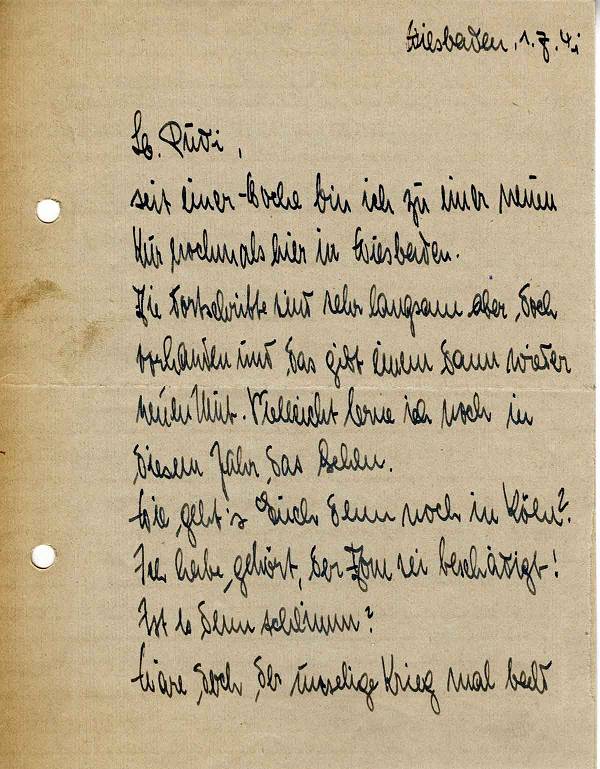 Wiesbaden, 1.7.41
Lb. Rudi,
seit einer Woche bin ich zu einer neuen
Kur nochmals hier in Wiesbaden.
Die Fortschritte sind sehr langsam aber doch
vorhanden und das gibt einem dann wieder
neuen Mut. Vielleicht lerne ich noch in
diesem Jahr das Gehen.
Wie geht's Euch denn noch in Köln?
Ich habe gehört, der Dom sei beschädigt!
Ist es denn schlimm?
Wäre doch der unselige Krieg mal bald